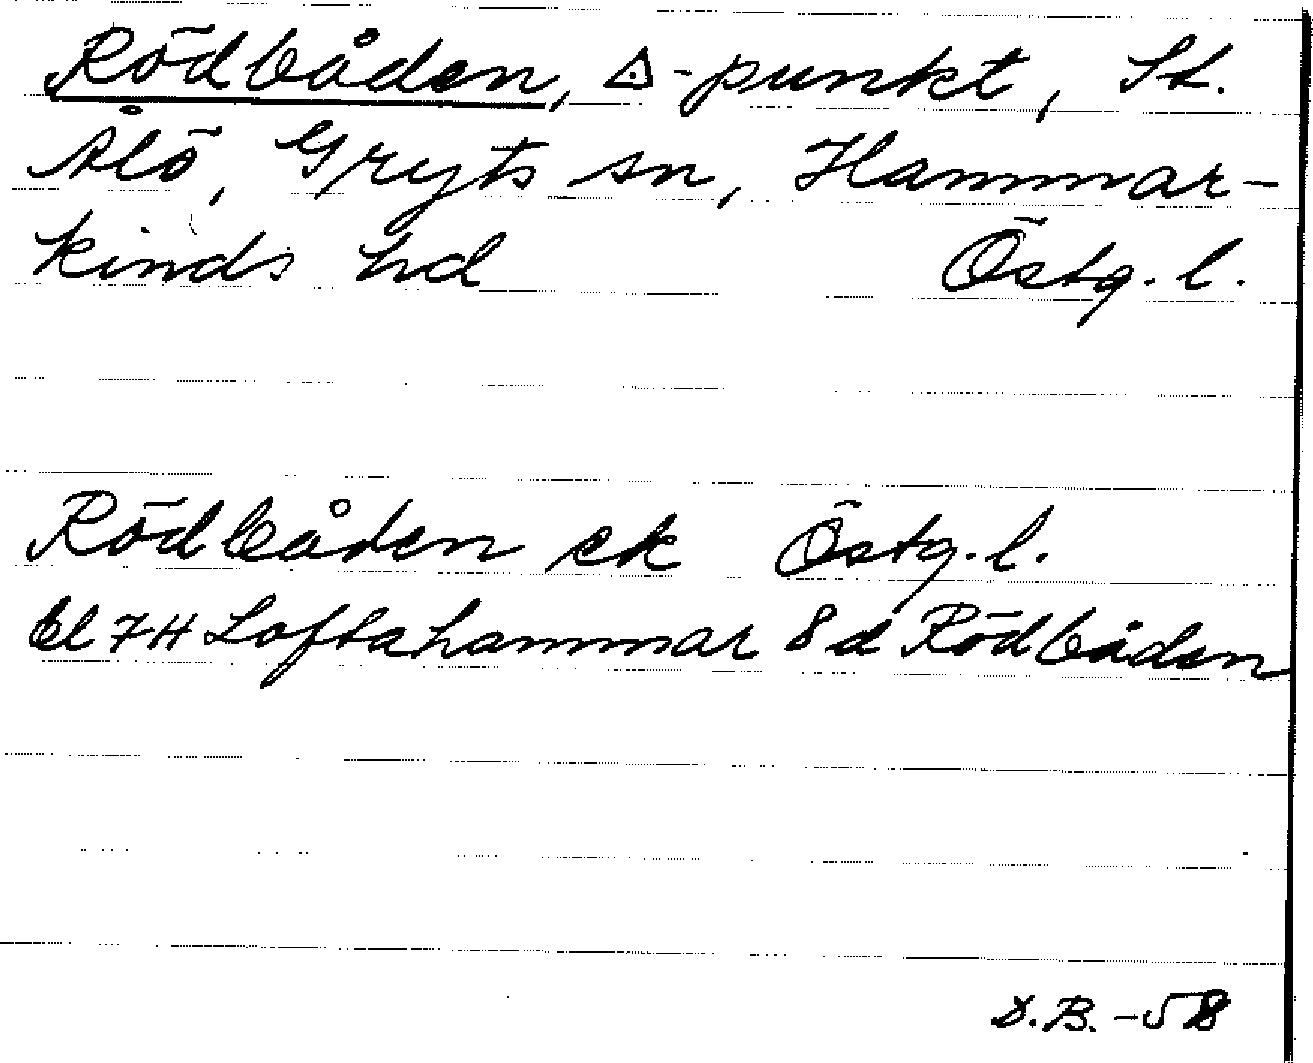 Rödbåden, △-punkt, St.
Ålö, Gryts sn, Hammar-
kinds hd Östg. l.
Rödbåden ek Östg. l.
bl 7H Loftahammar 8d Rödbåden
D.B. -58